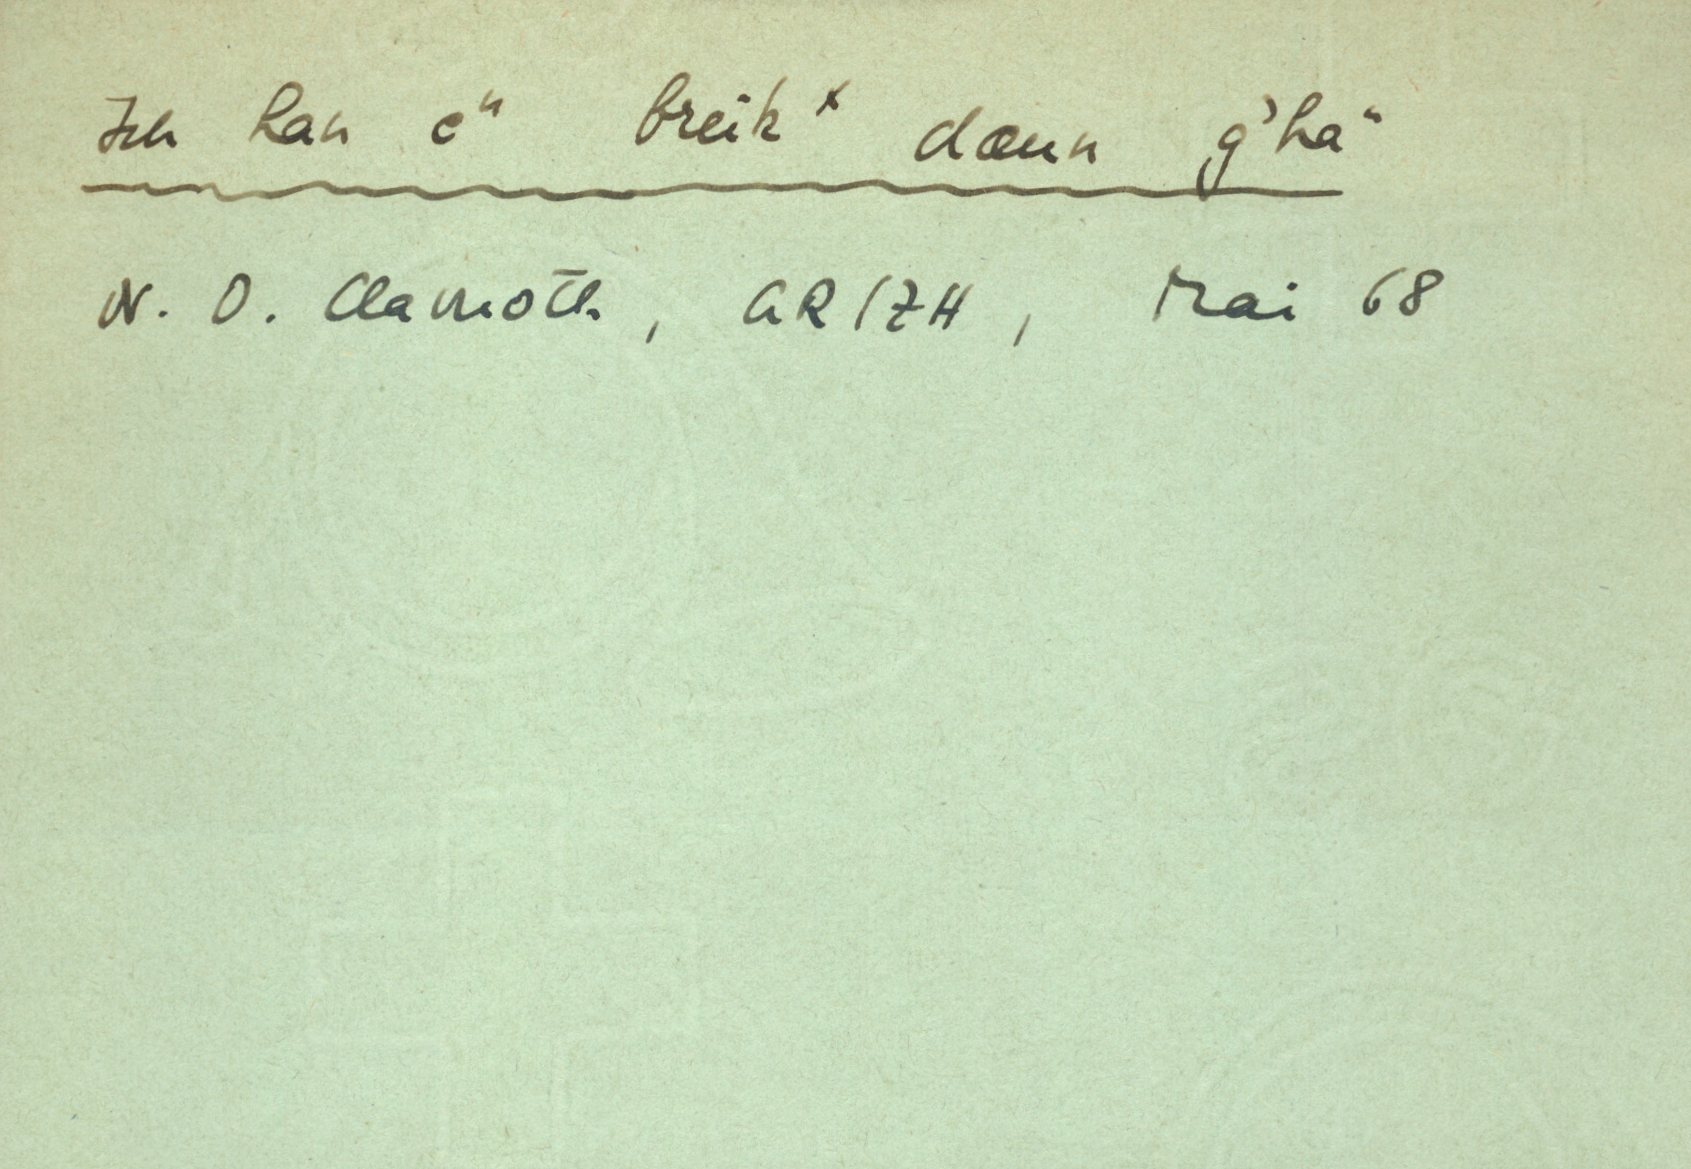 Ich han eⁿ breikˣ dänn g'haⁿ
N. O. Clamoth, GR/ZH, Mai 68